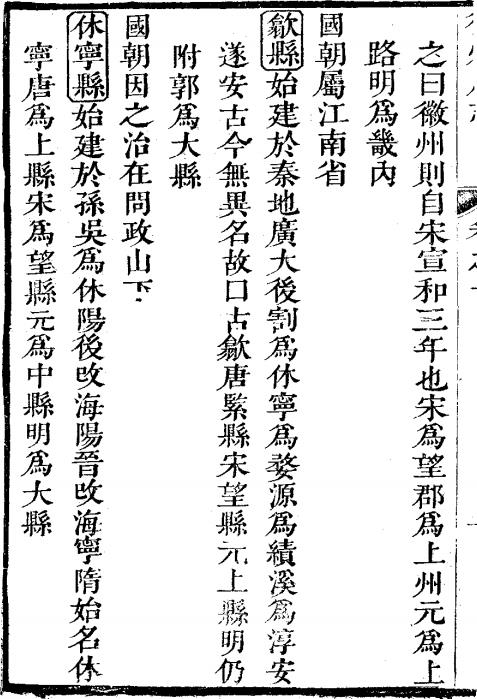 之曰徽州則自宋宣和三年也宋爲望郡爲上州元爲上
路明爲畿內
國朝屬江南省
歙縣始建於秦地廣大後割爲休寧爲婺源爲績溪爲淳安
遂安古今無異名故曰古歙唐緊縣宋望縣元上縣明仍
附郭爲大縣
國朝因之治在問政山下
休寧縣始建於孫吳爲休陽後改海陽晉改海寧隋始名休
寧唐爲上縣宋爲望縣元爲中縣明爲大縣